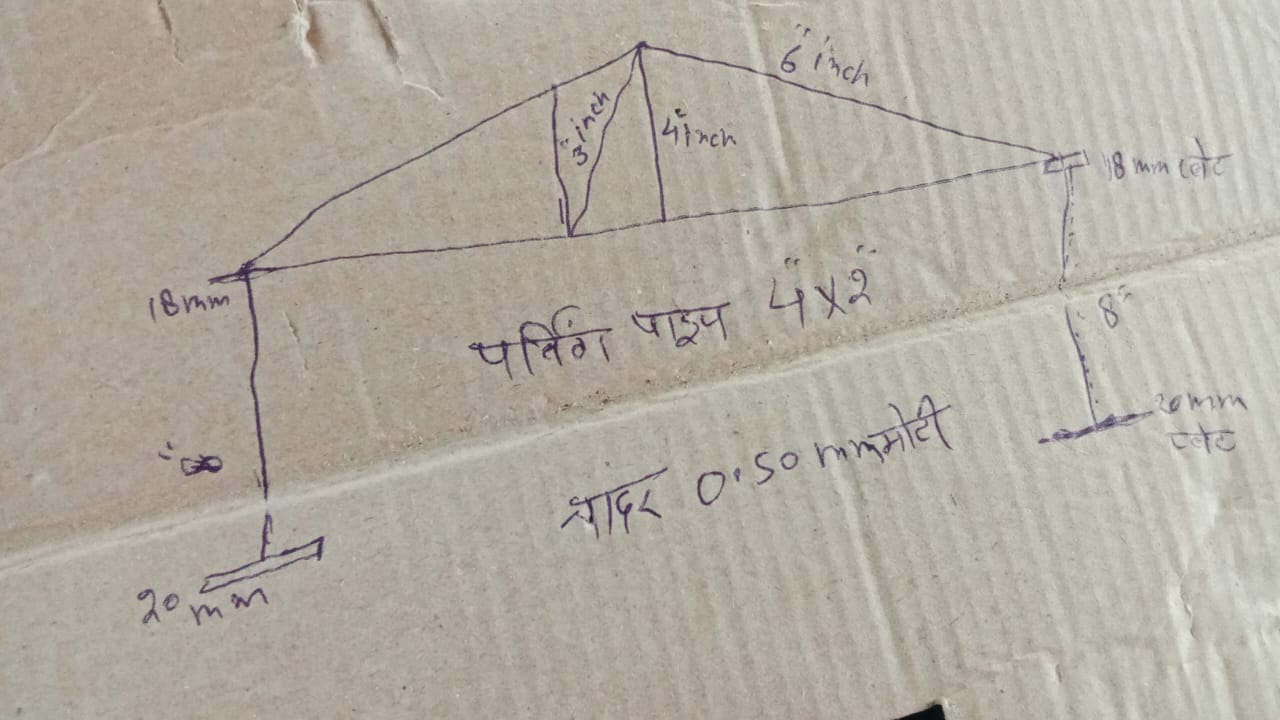 6" inch
3" inch
4" inch
18 mm प्लेट
18mm
पर्लिंग पाइप 4"X2"
8"
20mm
प्लेट
चादर 0.50 mm मोटी
20 mm